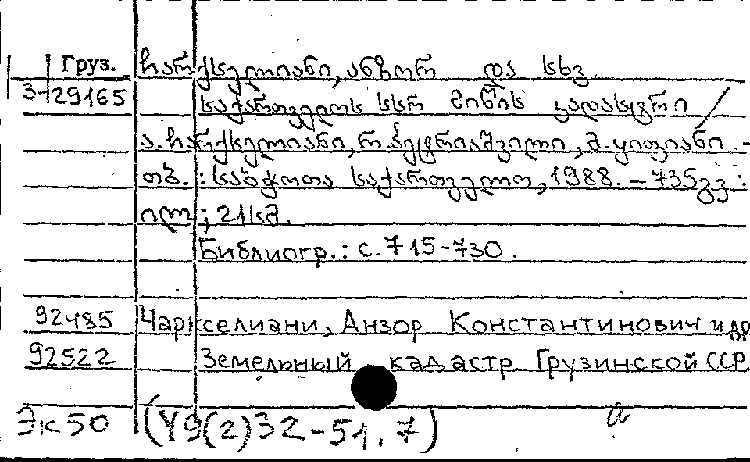 Груз. ჩარქსელიანი, ანზორ და სხვ.
3-29165 საქართველოს სსრ მიწის კადასტრი /
ა. ჩარქსელიანი, რ. პეტრიაშვილი, შ. ყიფიანი. -
თბ. : საბჭოთა საქართველო, 1988. - 735გვ :
ილ ; 21სმ.
Библиогр.: с. 715-730.
92485 Чаркселиани, Анзор Константинович и др
92522 Земельный кадастр Грузинской ССР
Эк50 (У9(2)32-51.7) а